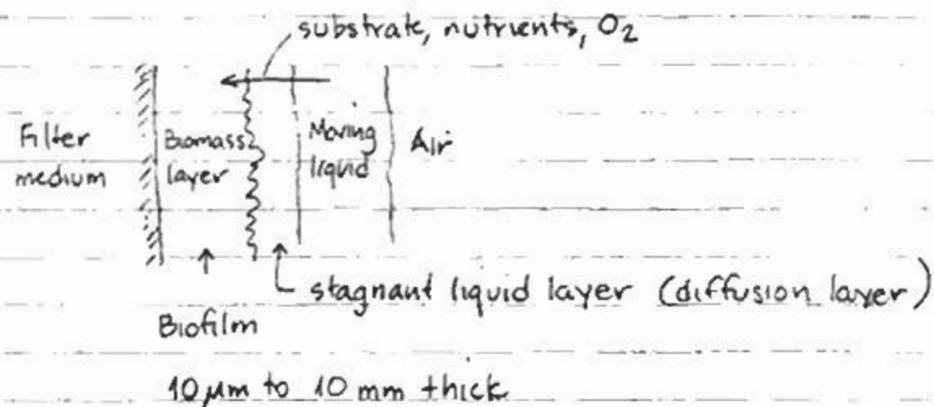 substrate, nutrients, O2
Filter
medium
Biomass
layer
Moving
liquid
Air
stagnant liquid layer (diffusion layer)
Biofilm
10 µm to 10 mm thick